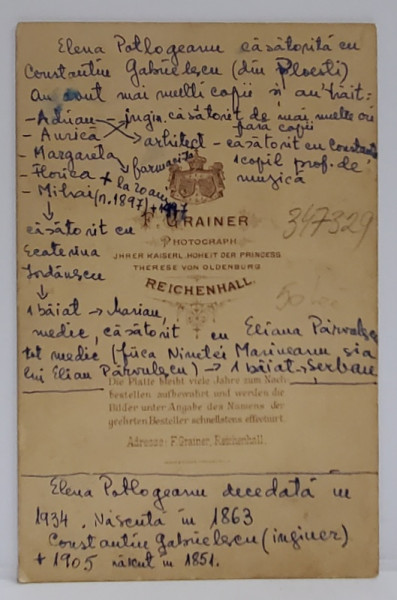 Elena Pothogeanu căsătorită cu
Constantin Gabrielescu (din Ploesti)
Au avut mai multi copii și au trăit:
- Adrian → ingin. căsătorit de mai multe ori
fără copii
- Aurică → arhitect - căsătorit cu Constanța
1 copil prof. de
muzică
- Margareta → farmacistă
- Florica + la 20 ani
- Mihai (n. 1897) +
căsătorit cu
Ecaterina
Iordănescu
F. GRAINER
PHOTOGRAPH
JHRER KAISERL. HOHEIT DER PRINCESS
THERESE VON OLDENBURG
REICHENHALL.
347329
50 Lei
1 băiat → Marian,
medic, căsătorit cu Eliana Pârvulescu
tot medic (fiica Ninetei Marineanu și a
lui Elian Pârvulescu) → 1 băiat → Serban
Die Platte bleibt viele Jahre zum Nach-
bestellen aufbewahrt und werden die
Bilder unter Angabe des Namens der
geehrten Besteller schnellstens effectuirt.
Adresse: F. Grainer, Reichenhall.
Elena Pothogeanu decedată în
1934. Născută în 1863
Constantin Gabrielescu (inginer)
+ 1905 născut în 1851.